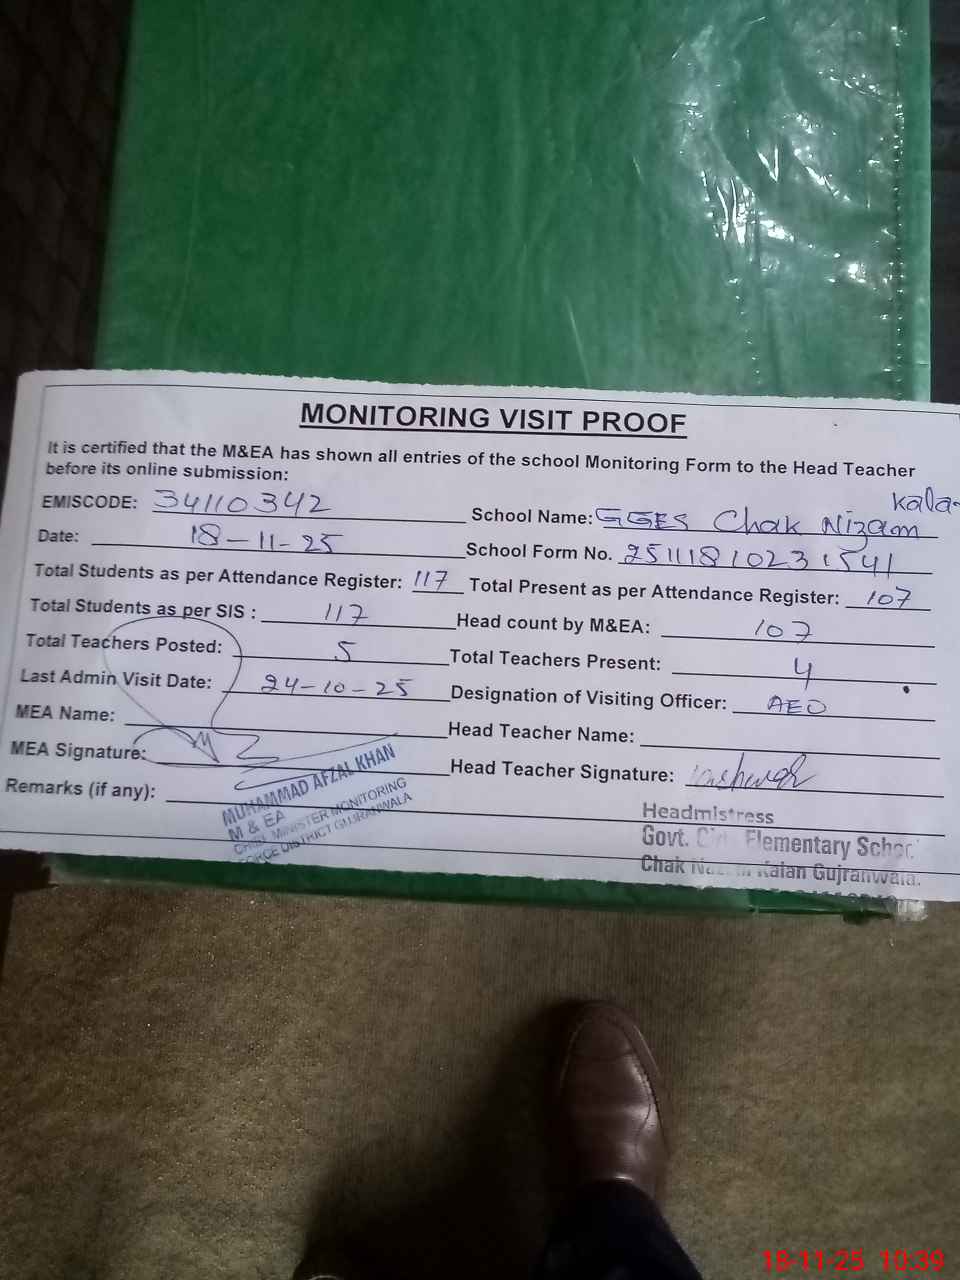 MONITORING VISIT PROOF
It is certified that the M&EA has shown all entries of the school Monitoring Form to the Head Teacher
before its online submission:
EMISCODE: 34110342 School Name: GGES Chak Nizam Kala
Date: 18-11-25 School Form No. 25111810231541
Total Students as per Attendance Register: 117 Total Present as per Attendance Register: 107
Total Students as per SIS : 117 Head count by M&EA: 107
Total Teachers Posted: 5 Total Teachers Present: 4
Last Admin Visit Date: 24-10-25 Designation of Visiting Officer: AEO
MEA Name: Head Teacher Name:
MEA Signature: Head Teacher Signature:
Remarks (if any):
MUHAMMAD AFZAL KHAN
M & EA
CHIEF MINISTER MONITORING
FORCE DISTRICT GUJRANWALA
Headmistress
Govt. Elementary
Chak Kalan Gujranwala.
18-11-25 10:39